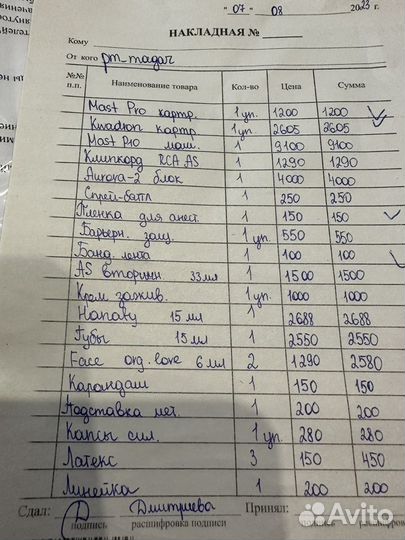 "07" 08 2023 г.
НАКЛАДНАЯ №
Кому
От кого pm-magaz
№№ п.п. Наименование товара Кол-во Цена Сумма
Mast Pro картр. 1 уп. 1200 1200
Kwadron картр 1 уп. 2605 2605
Mast Pro маш. 1 9100 9100
Клипкорд RCA AS 1 1290 1290
Aurora-2 блок 1 4000 4000
Спрей-батл 1 250 250
Пленка для анест. 1 150 150
Барьерн. защ. 1 уп. 550 550
Банд. лента 1 100 100
AS вторичн. 33 мл 1 1500 1500
Крем зажив. 1 уп. 1000 1000
Hanafy 15 мл 1 2688 2688
Губы 15 мл 1 2550 2550
Face org. love 6 мл 2 1290 2580
Карандаш 1 150 150
Подставка мет. 1 200 200
Капсы сил. 1 уп. 280 280
Латекс 3 150 450
Линейка 1 200 200
Сдал: Дмитриева Принял:
подпись расшифровка подписи подпись расшифров
Avito